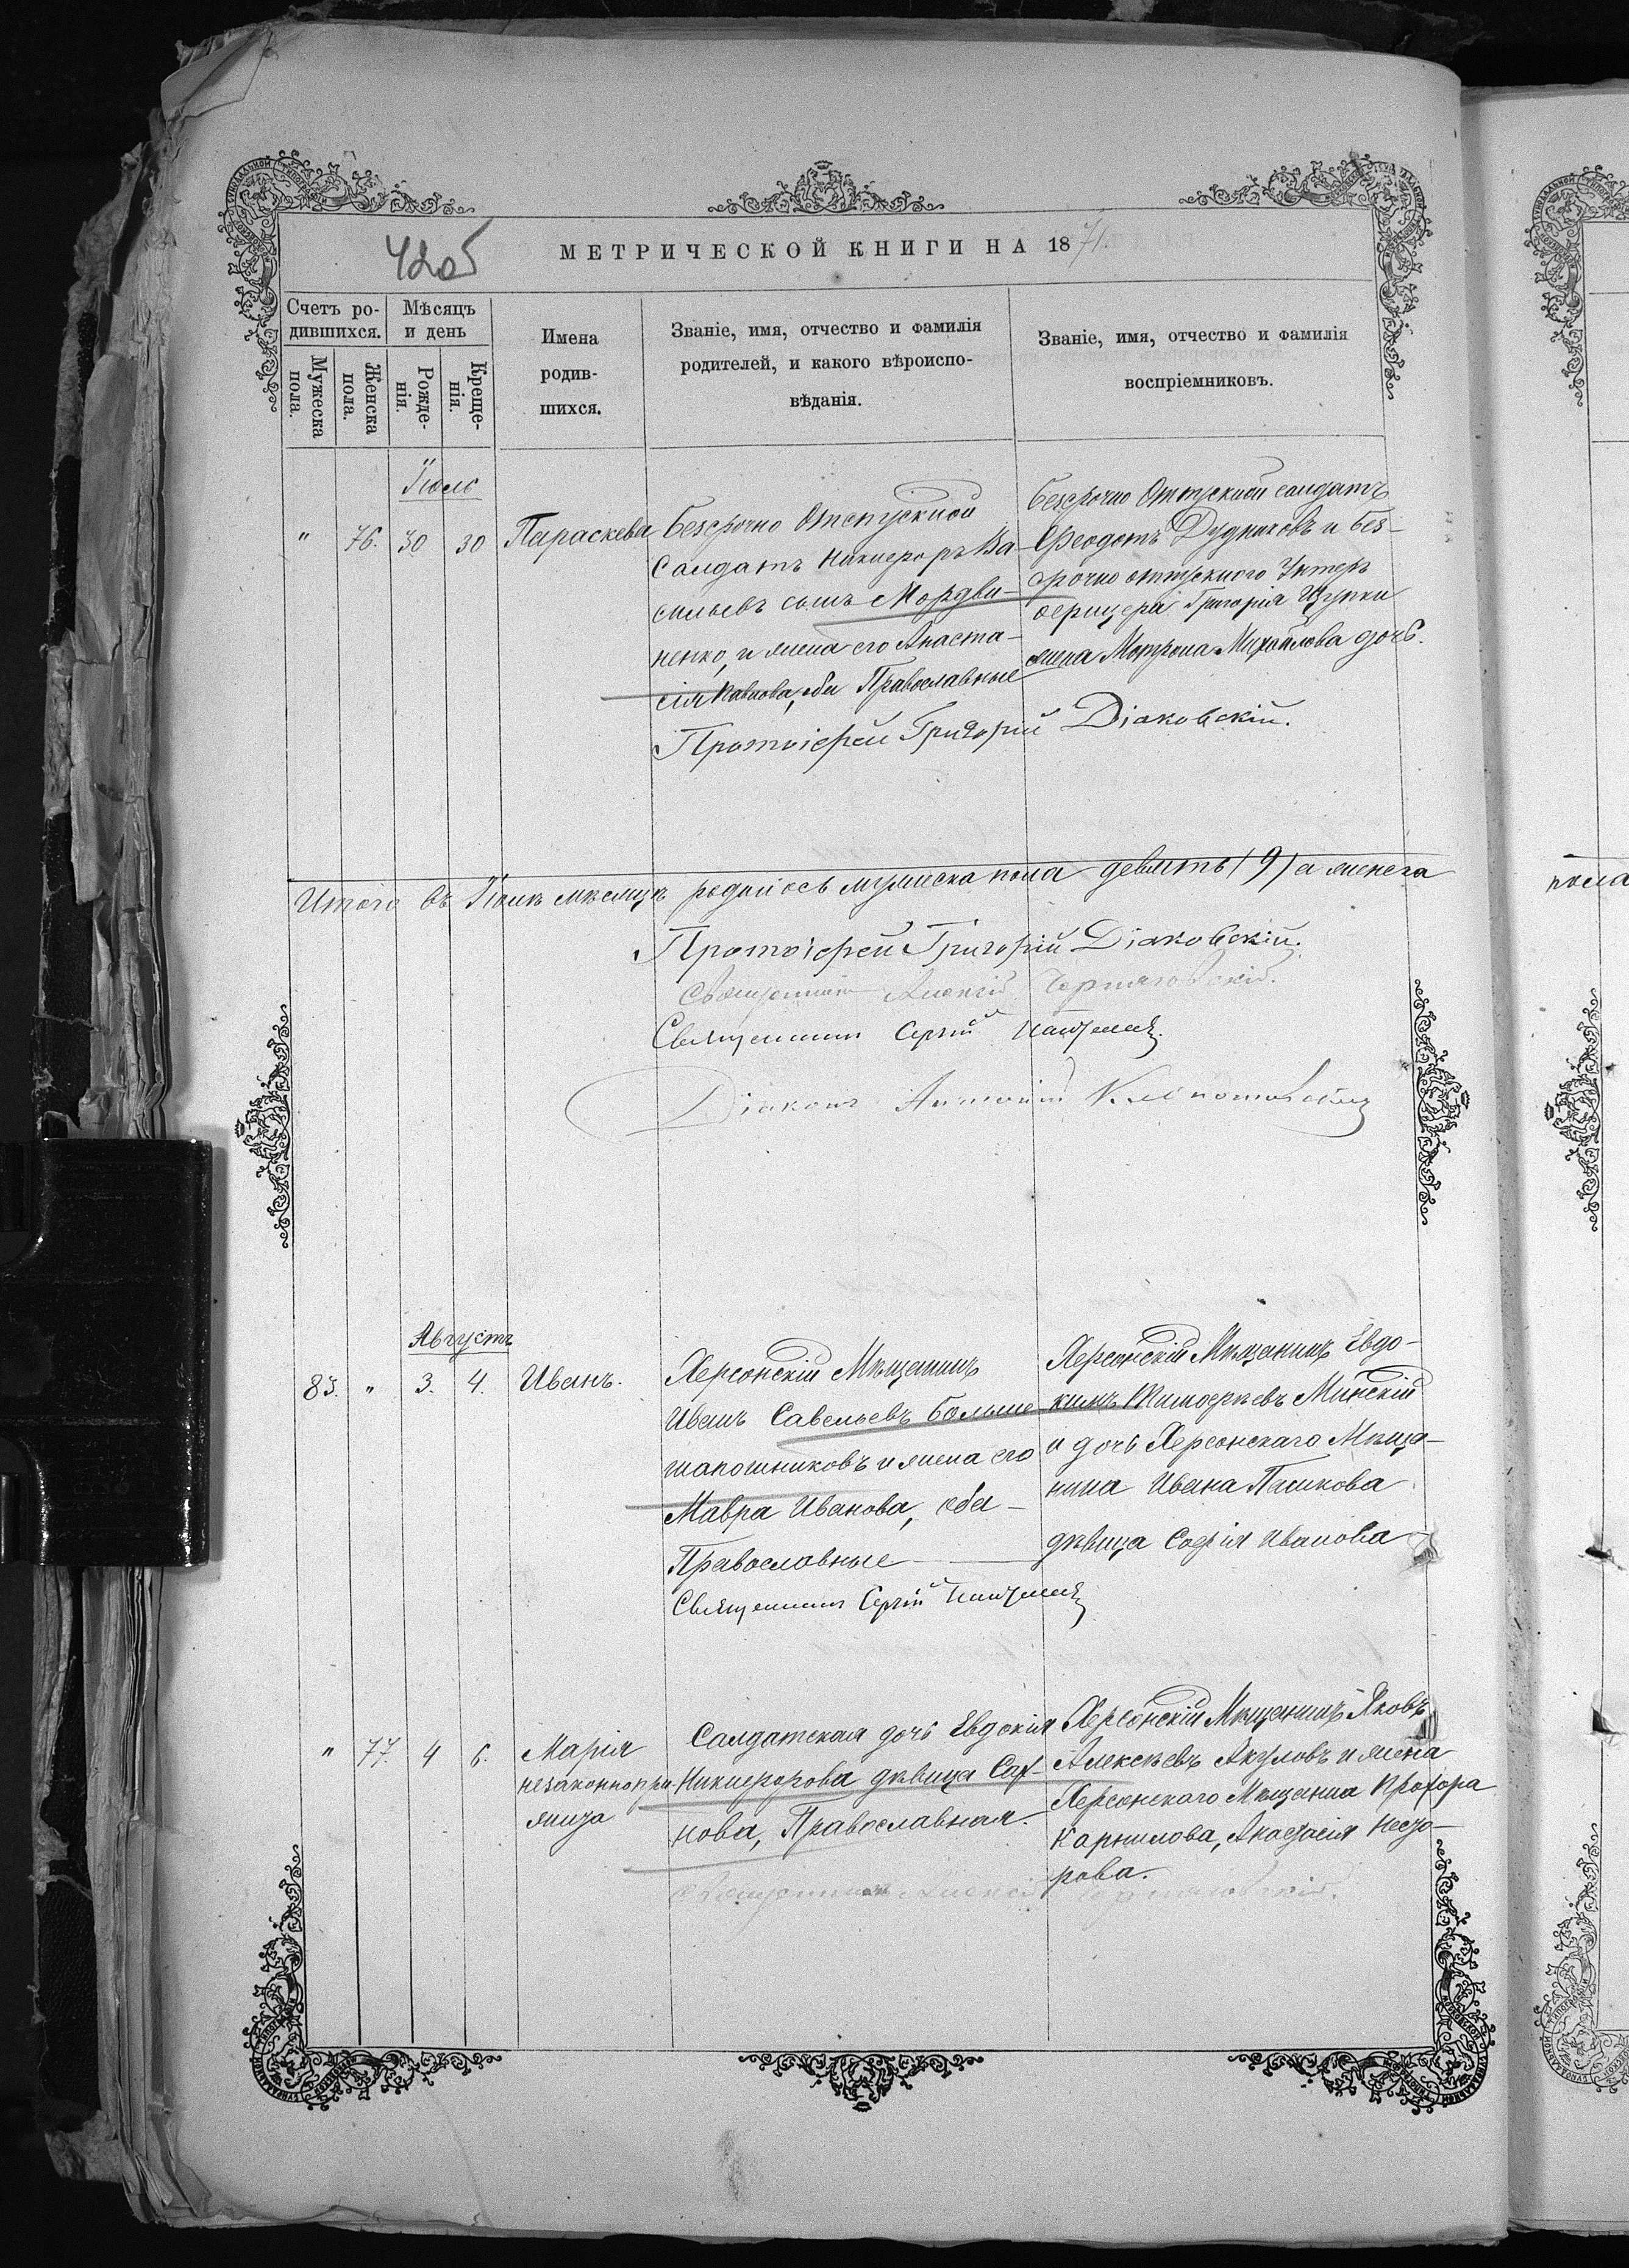 42об
МЕТРИЧЕСКОЙ КНИГИ НА 1871.
Счетъ ро-
дившихся.
Мѣсяцъ
и день
Мужеска
пола.
Женска
пола.
Рожде-
нія.
Креще-
нія.
Имена
родив-
шихся.
Званіе, имя, отчество и фамилія
родителей, и какого вѣроиспо-
вѣданія.
Званіе, имя, отчество и фамилія
воспріемниковъ.
Іюль
" 76. 30 30 Параскева
Безсрочно Отпускной
Салдатъ Никифоръ Ва-
сильевъ сынъ Мордви-
ненко, и жена его Анаста-
сія Павлова, оба Православные
Безсрочно Отпускной салдатъ
Феодотъ Дудниковъ и без-
срочно отпускного Унтеръ
офицера Григорія Цупки
жена Матрона Михайлова дочь.
Протоіерей Григорій Діаковскій.
Итого въ Іюлѣ мѣсяцѣ родилось мужеска пола девять (9) а женска
Протоіерей Григорій Діаковскій.
Священникъ Алексій Чернявскій.
Священникъ Сергій
Діаконъ Антоній
Августъ
83. " 3. 4. Иванъ.
Херсонскій Мѣщанинъ
Иванъ Савельевъ Больше-
шапошниковъ и жена его
Мавра Иванова, оба
Православные
Херсонскій Мѣщанинъ Евдо-
кимъ Тимофѣевъ Минскій
и дочь Херсонскаго Мѣща-
нина Ивана Пашкова
дѣвица Софія Иванова
Священникъ Сергій
" 77. 4 6. Марія
незаконнопри-
жита
Салдатская дочь Евдокія
Никифорова дѣвица Саф-
нова, Православная.
Херсонскій Мѣщанинъ Яковъ
Алексѣевъ Акуловъ и жена
Херсонскаго Мѣщанина Прохора
Корнилова,
рова.
Священникъ Алексій Чернявскій.
пола